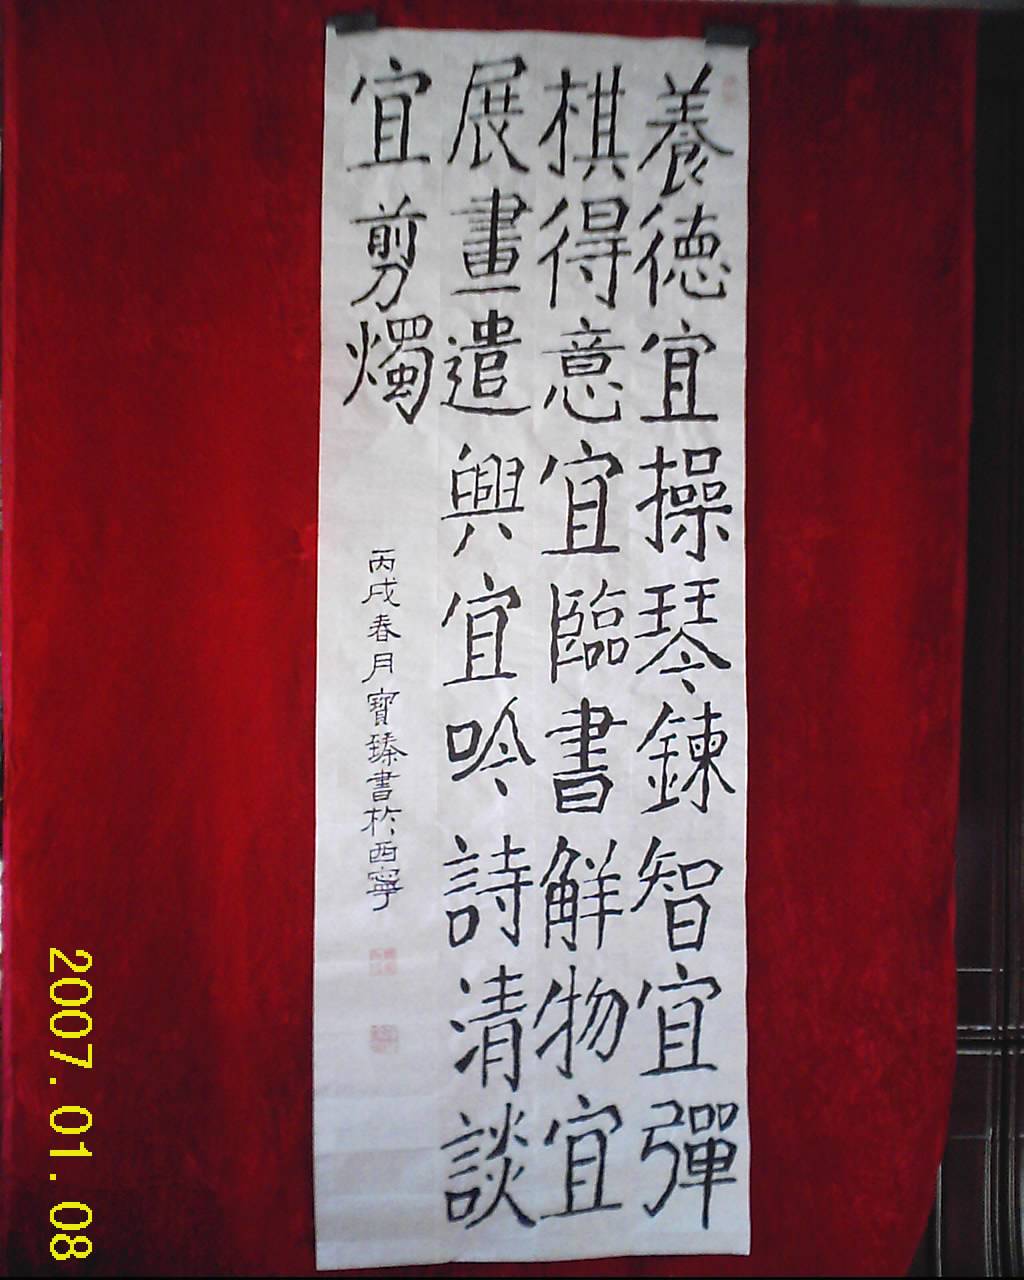 養德宜操琴鍊智宜彈
棋得意宜臨書解物宜
展畫遣興宜吟詩清談
宜剪燭
丙戌春月寶臻書於西寧
2007.01.08